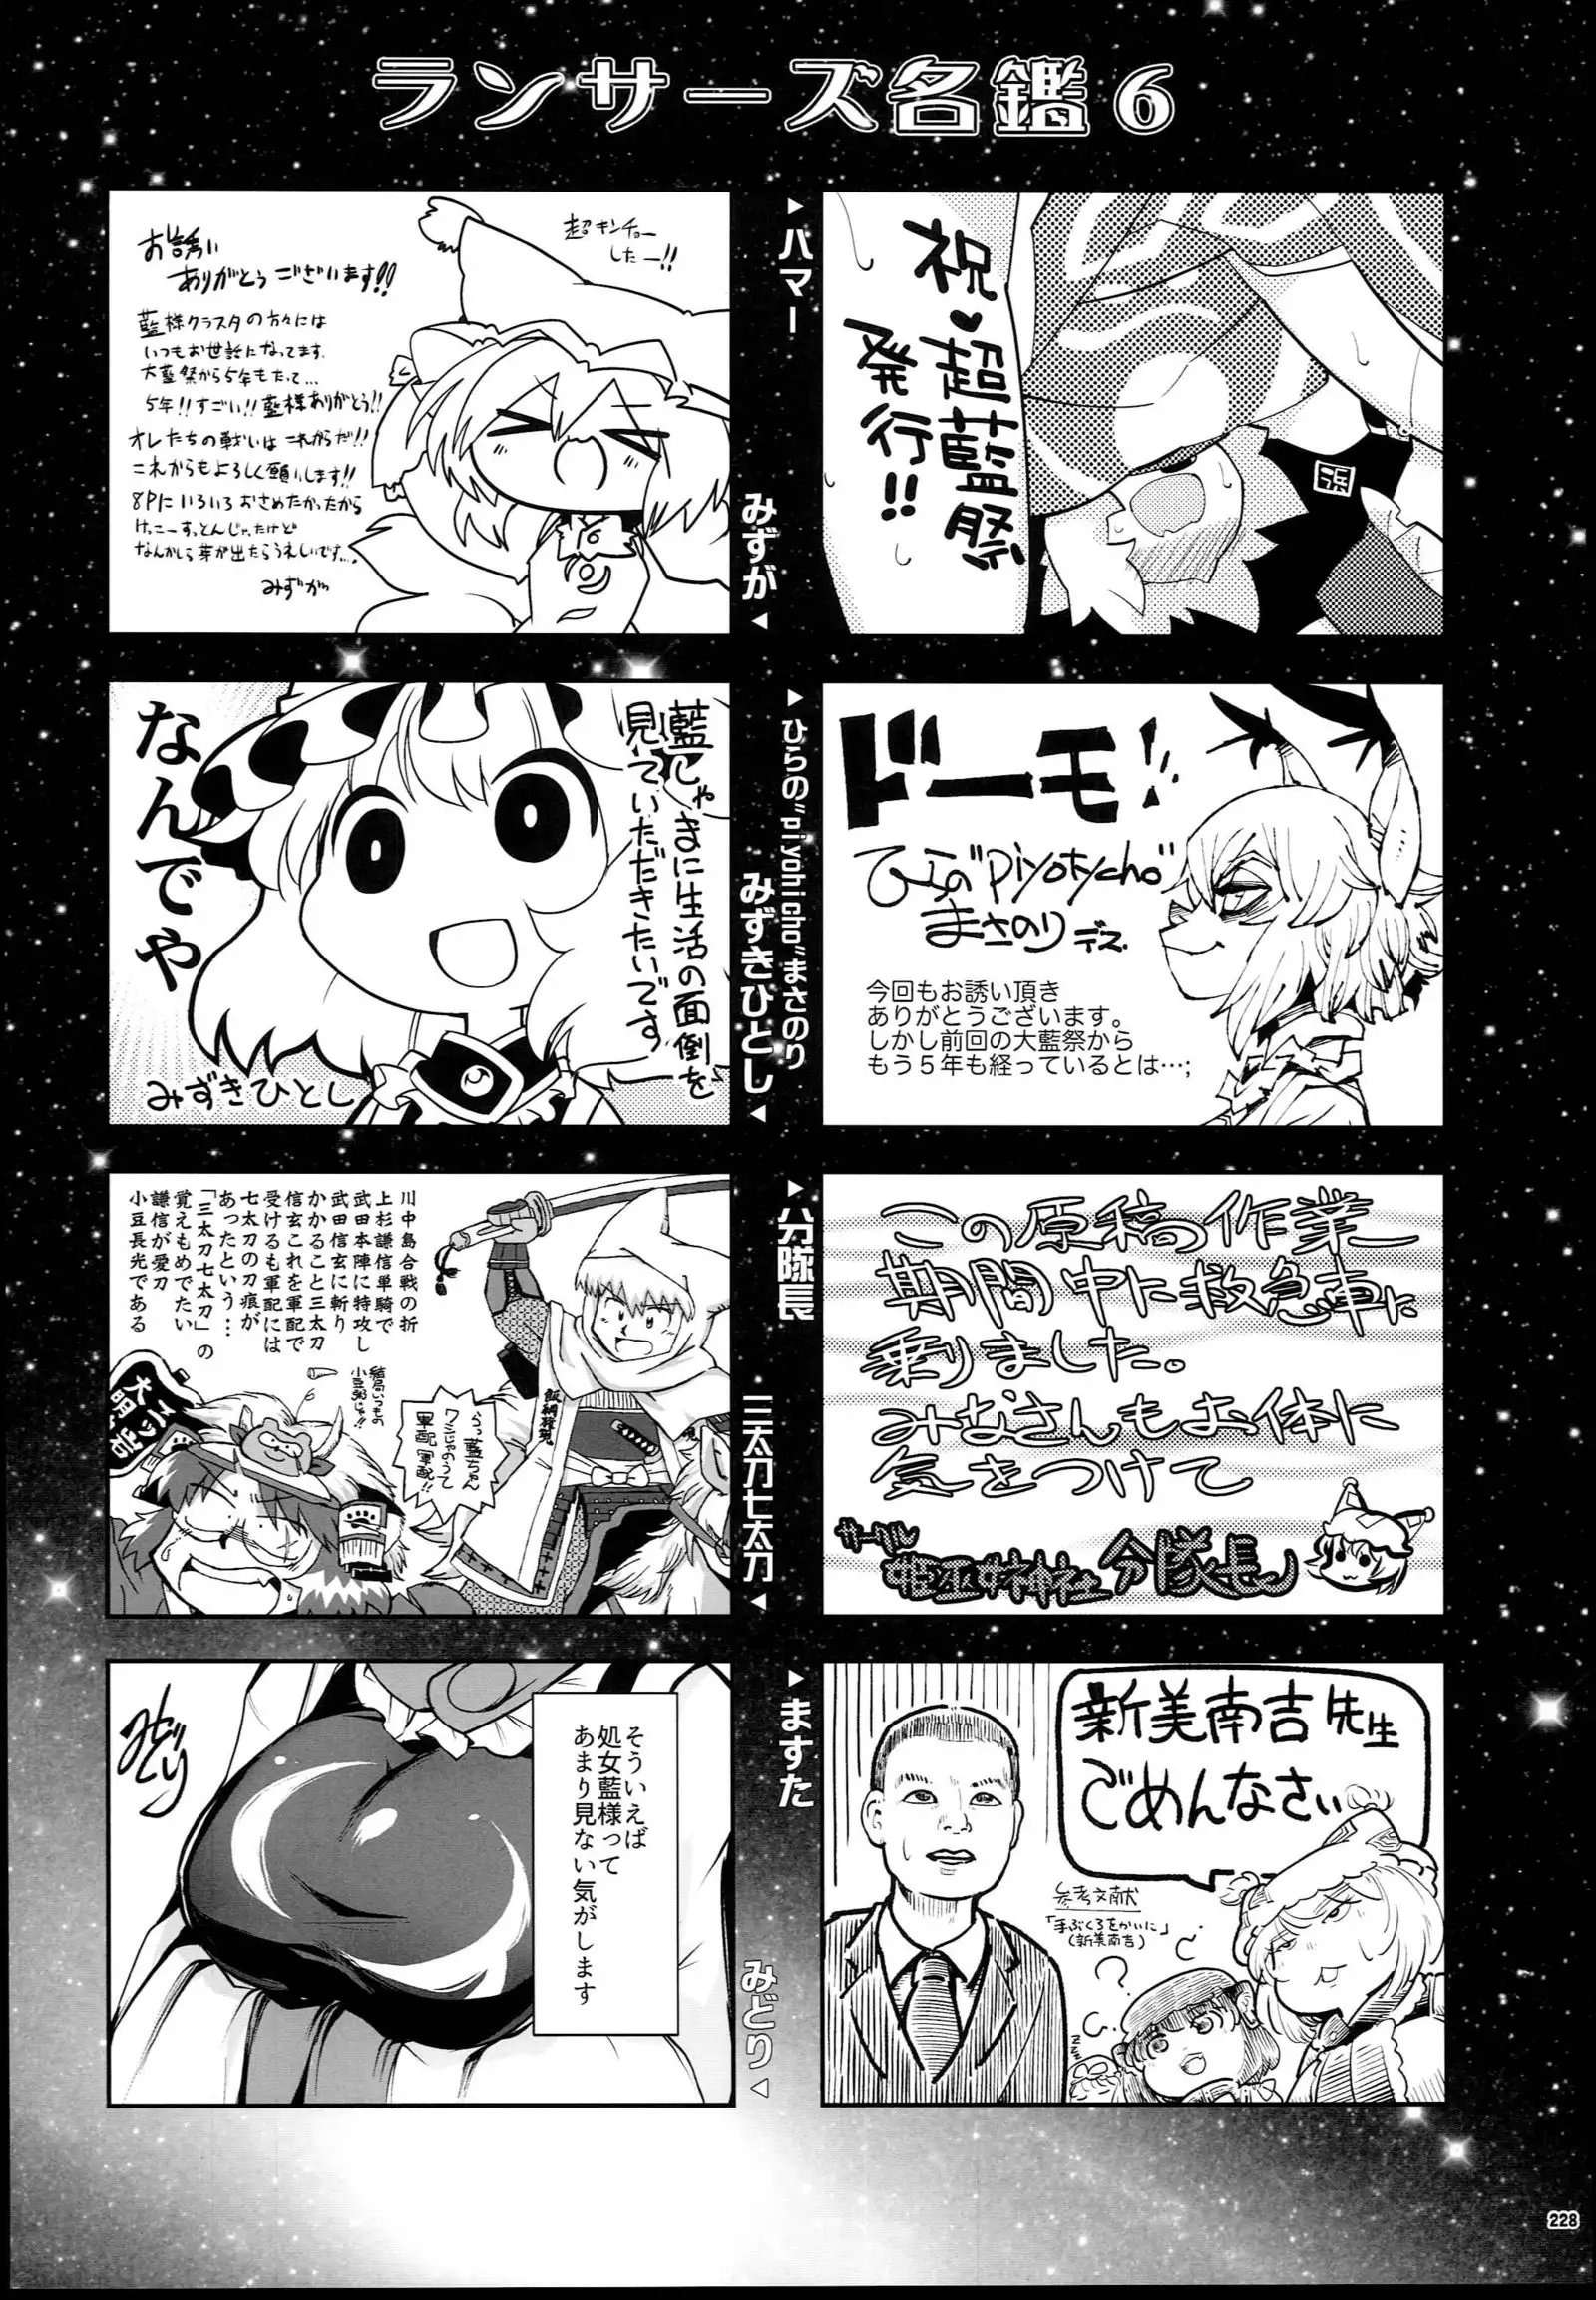 ランサーズ名鑑 6
▶ハマー
祝♥超藍祭
発行!!
みずが◀
超キンチョー
したー!!
お誘い
ありがとうございます!!
藍様クラスタの方々には
いつもお世話になってます。
大藍祭から5年もたって…
5年!!すごい!!藍様ありがとう!!
オレたちの戦いはこれからだ!!
これからもよろしく願いします!!
8Pにいろいろおさめたかったから
けっこーすっとんじゃたけど
なんかしら芽が出たらうれしいです…。
みずが
▶ひらの"piyohicho"まさのり
ドーモ!
ひらの"piyotycho"
まさのりデス
今回もお誘い頂き
ありがとうございます。
しかし前回の大藍祭から
もう5年も経っているとは…;
みずきひとし◀
藍しゃまに生活の面倒を
見ていただきたいです
なんでや
みずきひとし
▶分隊長
この原稿作業
期間中に救急車に
乗りました。
みなさんもお体に
気をつけて
サークル
分隊長
三太刀七太刀◀
川中島合戦の折
上杉謙信単騎で
武田本陣に特攻し
武田信玄に斬り
かかること三太刀
信玄これを軍配で
受けるも軍配には
七太刀の刀痕が
あったという…
「三太刀七太刀」の
覚えもめでたい
謙信が愛刀
小豆長光である
飯綱権現
結局いつもの
小豆粥じゃ!!
らっ藍ちゃん
ワニじゃのうて
軍配軍配!!
▶ますた
新美南吉先生
ごめんなさい
参考文献
「手ぶくろをかいに」
(新美南吉)
みどり◀
そういえば
処女藍様って
あまり見ない気がします
みどり
228